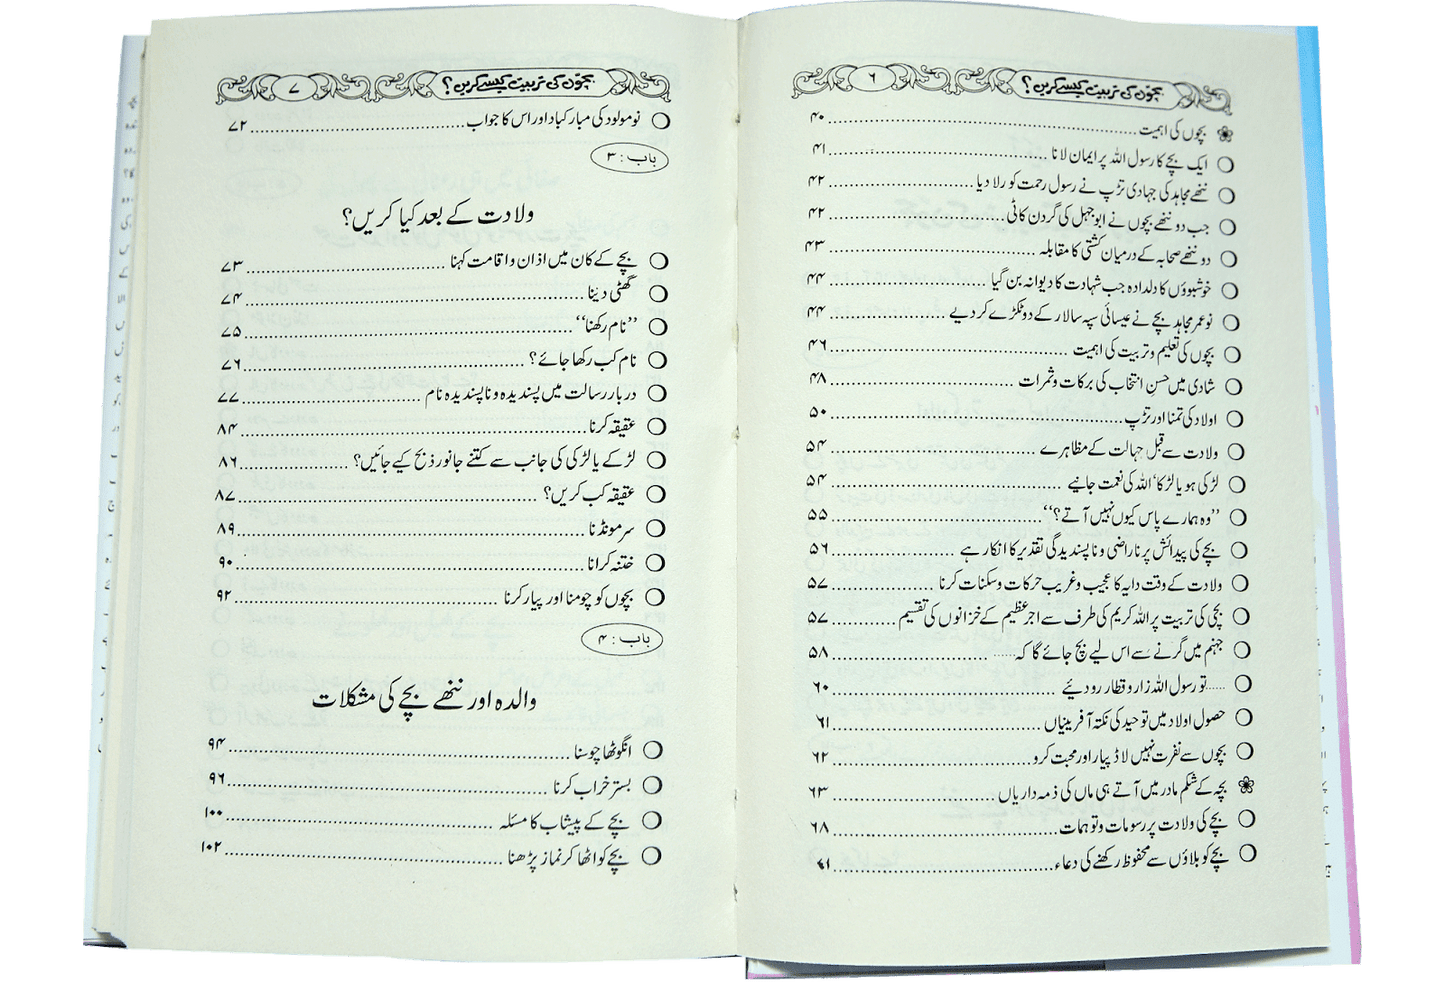 بچوں کی تربیت کیسے کریں؟ ۶
بچوں کی اہمیت ۴۰
ایک بچے کا رسول اللہ پر ایمان لانا ۴۱
ننھے مجاہد کی جہادی تڑپ نے رسول رحمت کو رلا دیا ۴۲
جب دو ننھے بچوں نے ابو جہل کی گردن کاٹی ۴۲
دو ننھے صحابہ کے درمیان کشتی کا مقابلہ ۴۳
خوشبوؤں کا دلدادہ جب شہادت کا دیوانہ بن گیا ۴۴
نو عمر مجاہد بچے نے عیسائی سپہ سالار کے دو ٹکڑے کر دیے ۴۴
بچوں کی تعلیم و تربیت کی اہمیت ۴۶
شادی میں حسنِ انتخاب کی برکات و ثمرات ۴۸
اولاد کی تمنا اور تڑپ ۵۰
ولادت سے قبل جہالت کے مظاہرے ۵۴
لڑکی ہو یا لڑکا‘ اللہ کی نعمت جانیے ۵۴
”وہ ہمارے پاس کیوں نہیں آتے؟“ ۵۵
بچے کی پیدائش پر ناراضی و ناپسندیدگی تقدیر کا انکار ہے ۵۶
ولادت کے وقت دایہ کا عجیب و غریب حرکات و سکنات کرنا ۵۷
بچی کی تربیت پر اللہ کریم کی طرف سے اجر عظیم کے خزانوں کی تقسیم ۵۷
جہنم میں گرنے سے اس لیے بچ جائے گا کہ...... ۵۸
......تو رسول اللہ زار و قطار رو دیئے ۶۰
حصول اولاد میں توحید کی نکتہ آفرینیاں ۶۱
بچوں سے نفرت نہیں لاڈ پیار اور محبت کرو ۶۲
بچہ کے شکم مادر میں آتے ہی ماں کی ذمہ داریاں ۶۳
بچے کی ولادت پر رسومات و توہمات ۶۸
بچے کو بلاؤں سے محفوظ رکھنے کی دعاء ۷۱
بچوں کی تربیت کیسے کریں؟ ۷
نومولود کی مبارکباد اور اس کا جواب ۷۲
باب : ۳
ولادت کے بعد کیا کریں؟
بچے کے کان میں اذان و اقامت کہنا ۷۳
گھٹی دینا ۷۴
”نام رکھنا“ ۷۵
نام کب رکھا جائے؟ ۷۶
دربار رسالت میں پسندیدہ و ناپسندیدہ نام ۷۷
عقیقہ کرنا ۸۴
لڑکے یا لڑکی کی جانب سے کتنے جانور ذبح کیے جائیں؟ ۸۶
عقیقہ کب کریں؟ ۸۷
سر مونڈنا ۸۹
ختنہ کرانا ۹۰
بچوں کو چومنا اور پیار کرنا ۹۲
باب : ۴
والدہ اور ننھے بچے کی مشکلات
انگوٹھا چوسنا ۹۴
بستر خراب کرنا ۹۶
بچے کے پیشاب کا مسئلہ ۱۰۰
بچے کو اٹھا کر نماز پڑھنا ۱۰۲